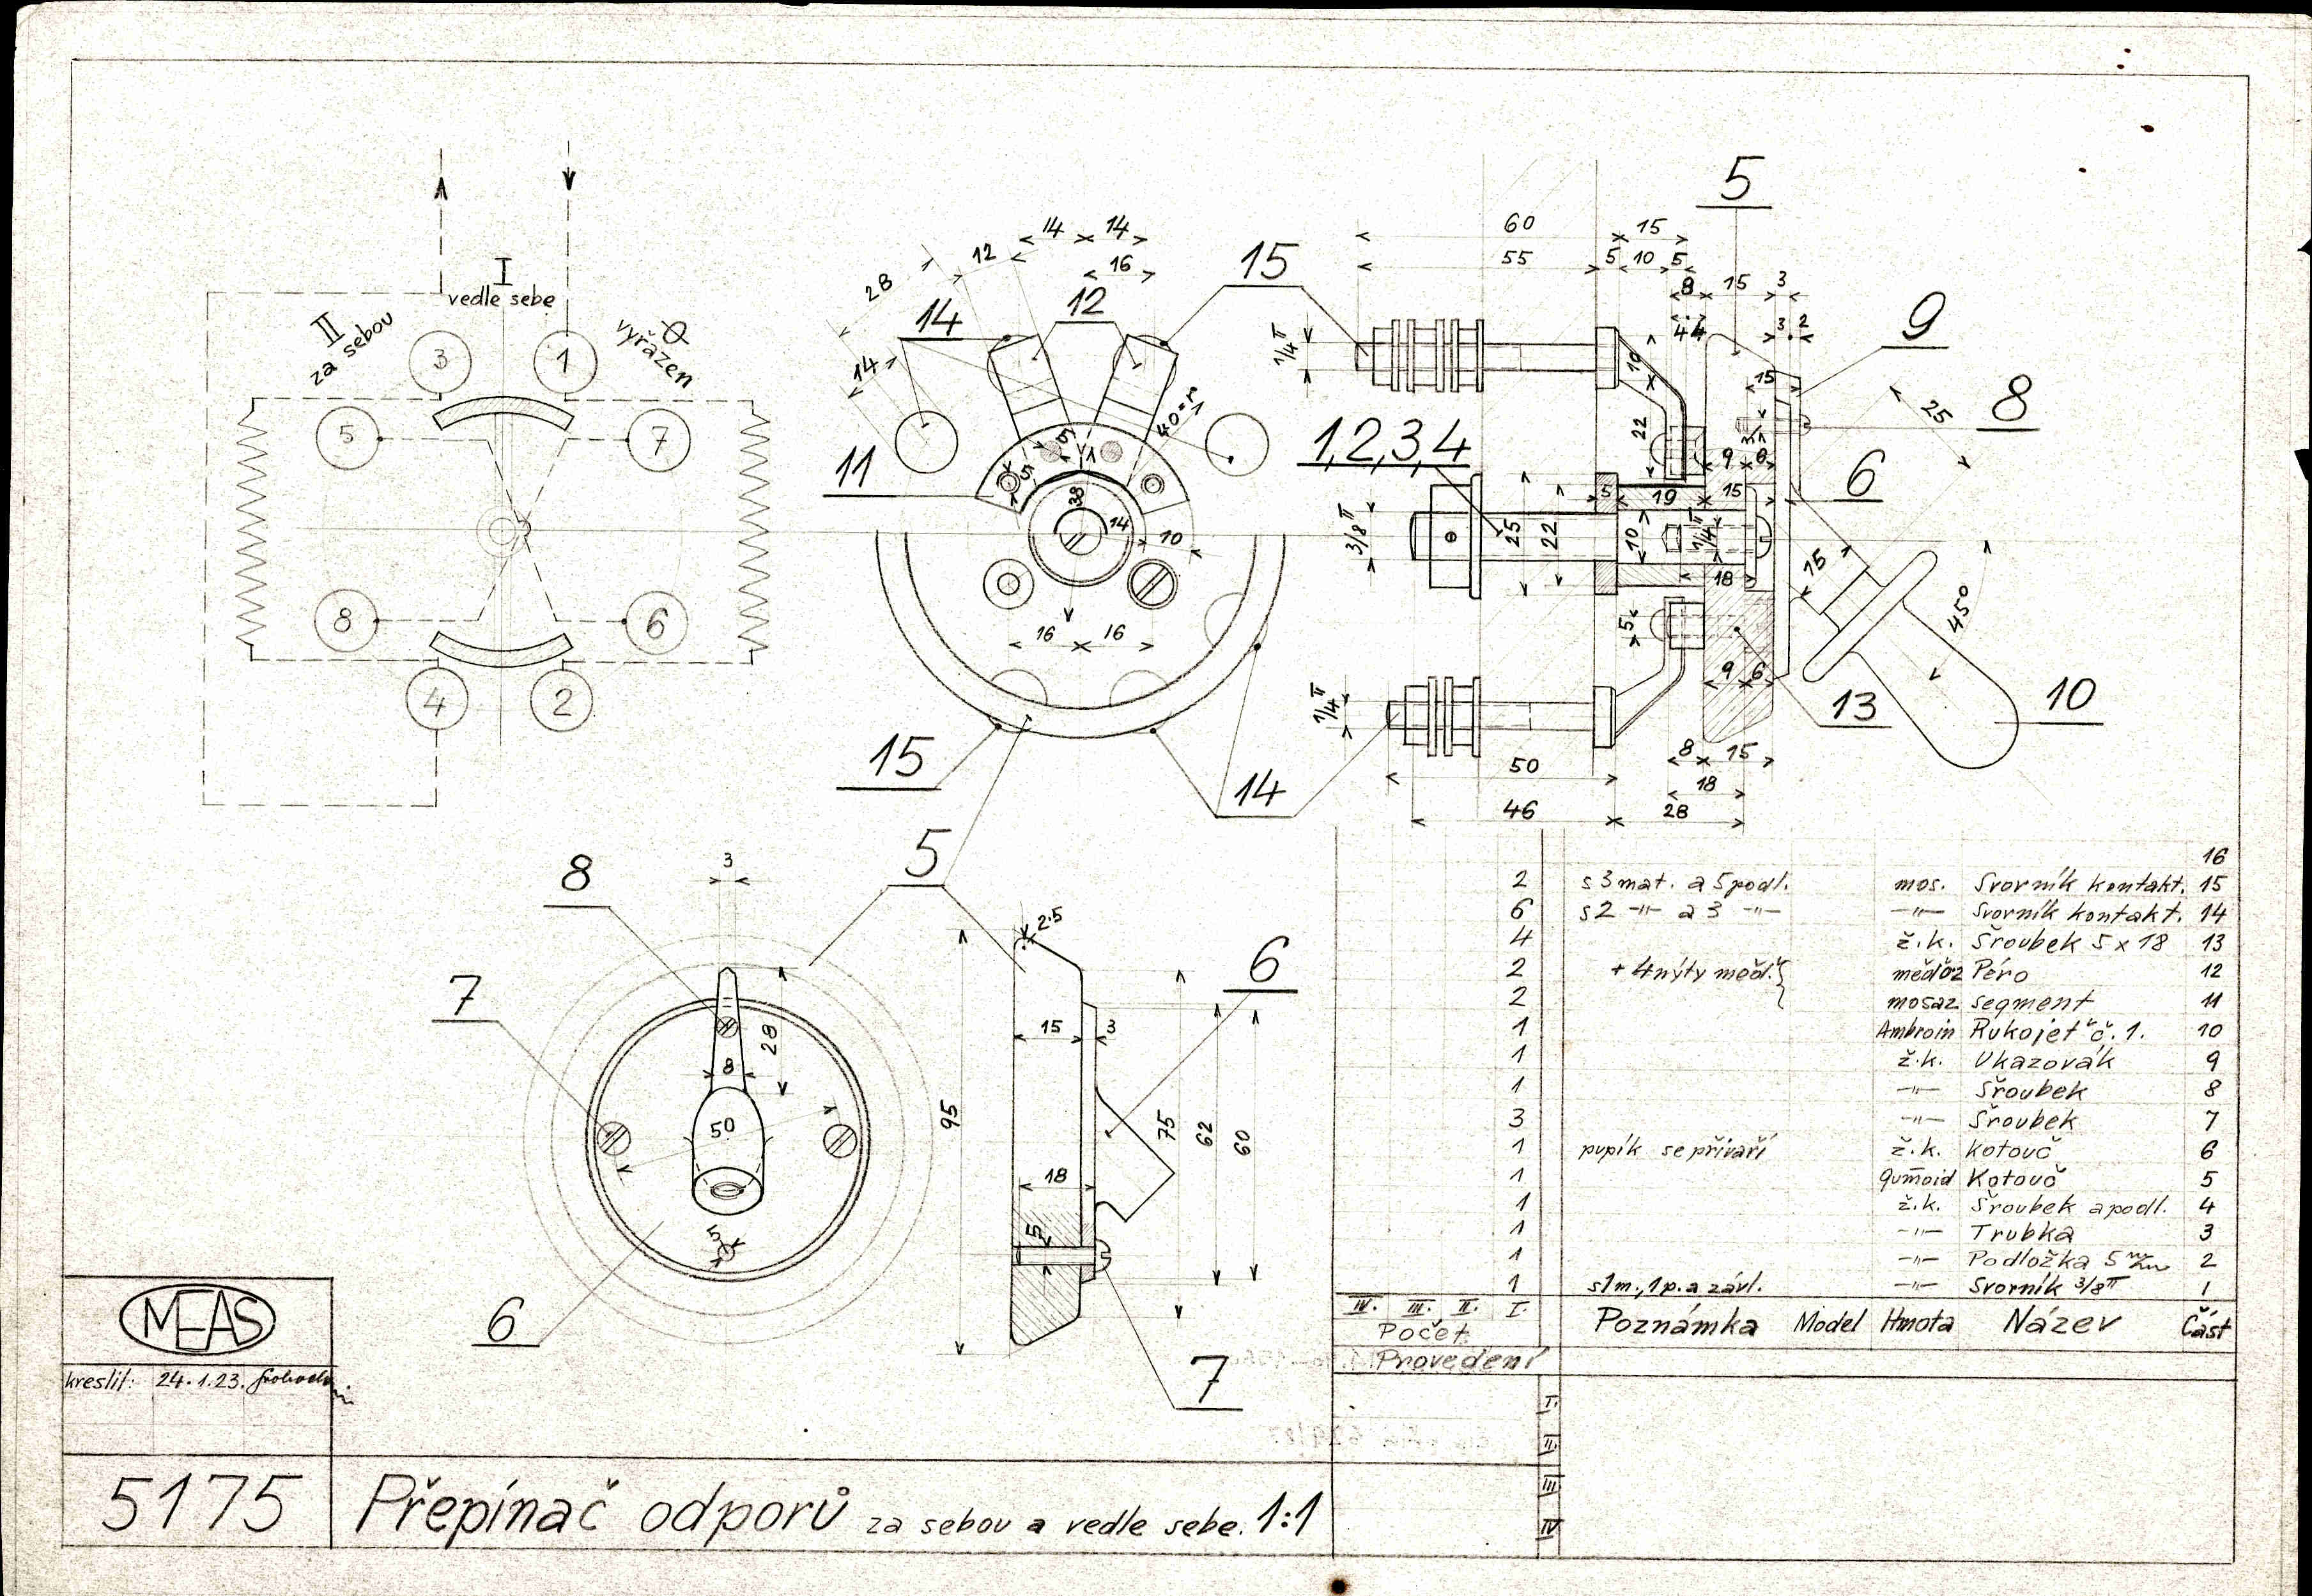 I
vedle sebe
II
za sebou
0
vyřazen
3
1
5
7
8
6
4
2
14 14
12
16
28
14
12
15
14
11
40=r
1
5
5
1
38
14
10
16 16
15
14
5
60
15
55
5 10 5
8 15 3
44
3 2
1/4"
10
15
9
22
25
8
1,2,3,4
3
9 6
6
5 19 15
3/8"
25
22
10
1/4"
18
15
45°
5
9 6
1/4"
13
10
8 15
50
18
46
28
8
3
5
2·5
7
6
28
15
3
8
50
95
75
62
60
18
5
5
6
7
16
2 s 3 mat. a 5 podl. mos. Svorník kontakt. 15
6 s 2 -"- a 3 -"- -"- Svorník kontakt. 14
4 ž.k. Šroubek 5 x 18 13
2 + 4 nýty měď. Péro 12
2 mosaz segment 11
1 Ambroin Rukojeť č. 1. 10
1 ž.k. Ukazovák 9
1 -"- Šroubek 8
3 -"- Šroubek 7
1 pupík se přivaří ž.k. Kotouč 6
1 gumoid Kotouč 5
1 ž.k. Šroubek a podl. 4
1 -"- Trubka 3
1 -"- Podložka 5 m/m 2
1 s 1 m., 1 p. a závl. -"- Svorník 3/8" 1
IV. III. II. I.
Počet
Poznámka Model Hmota Název Část
Provedení
I.
II.
III
IV
MEAS
kreslil: 24.1.23.
5175
Přepínač odporů za sebou a vedle sebe. 1:1